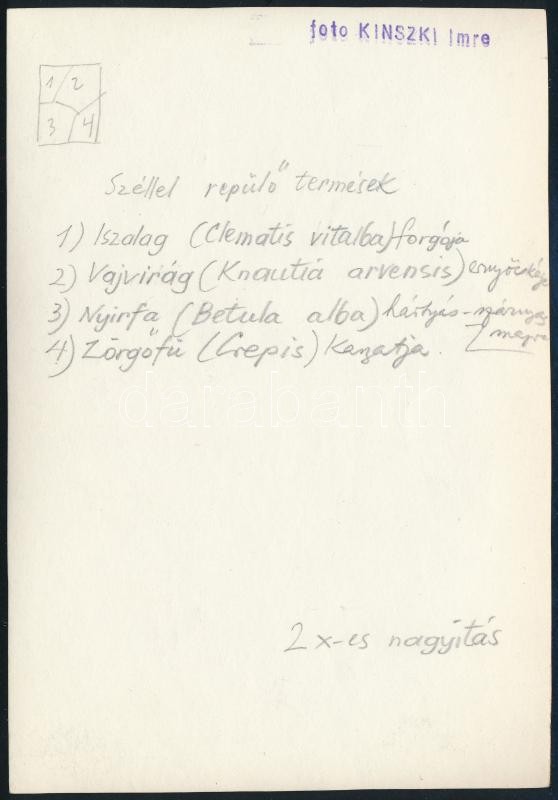 foto KINSZKI Imre
1 2
3 4
Széllel repülő termések
1) Iszalag (Clematis vitalba) forgója
2) Vajvirág (Knautia arvensis) ernyőcskéje
3) Nyirfa (Betula alba) hártyás-szárnyas
magva
4) Zörgőfű (Crepis) Kazatja.
darabanth
2x-es nagyitás